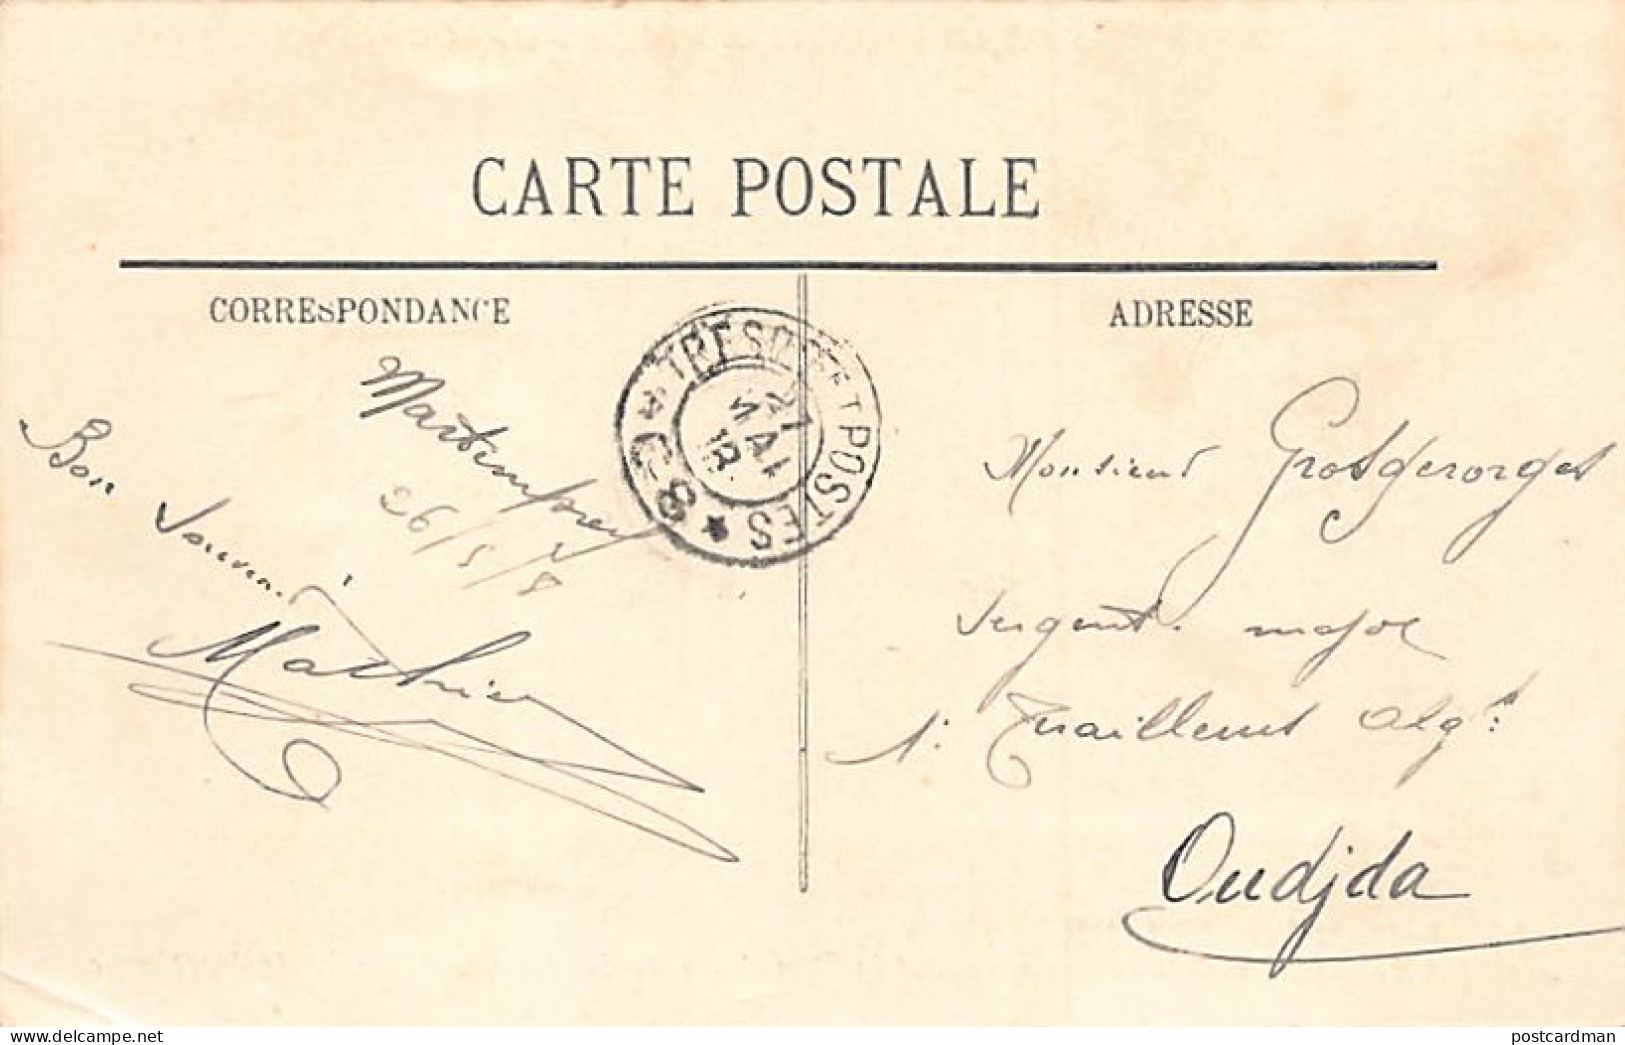 CARTE POSTALE
CORRESPONDANCE
ADRESSE
TRESOR ET POSTES
27
MAI
18
Martimprey
26/5/8
Bon souvenir
Mathieu
Monsieur Grosgeorges
Sergent major
1: Tirailleurs Alg:
Oudjda
www.delcampe.net
postcardman